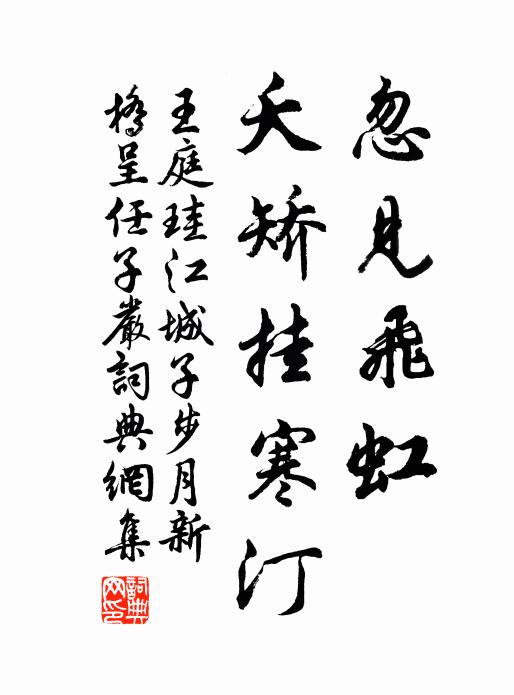 忽见飛虹
夭矫挂寒汀
王庭珪江城子步月新
橋呈任子嚴詞典網集
詞典
网印